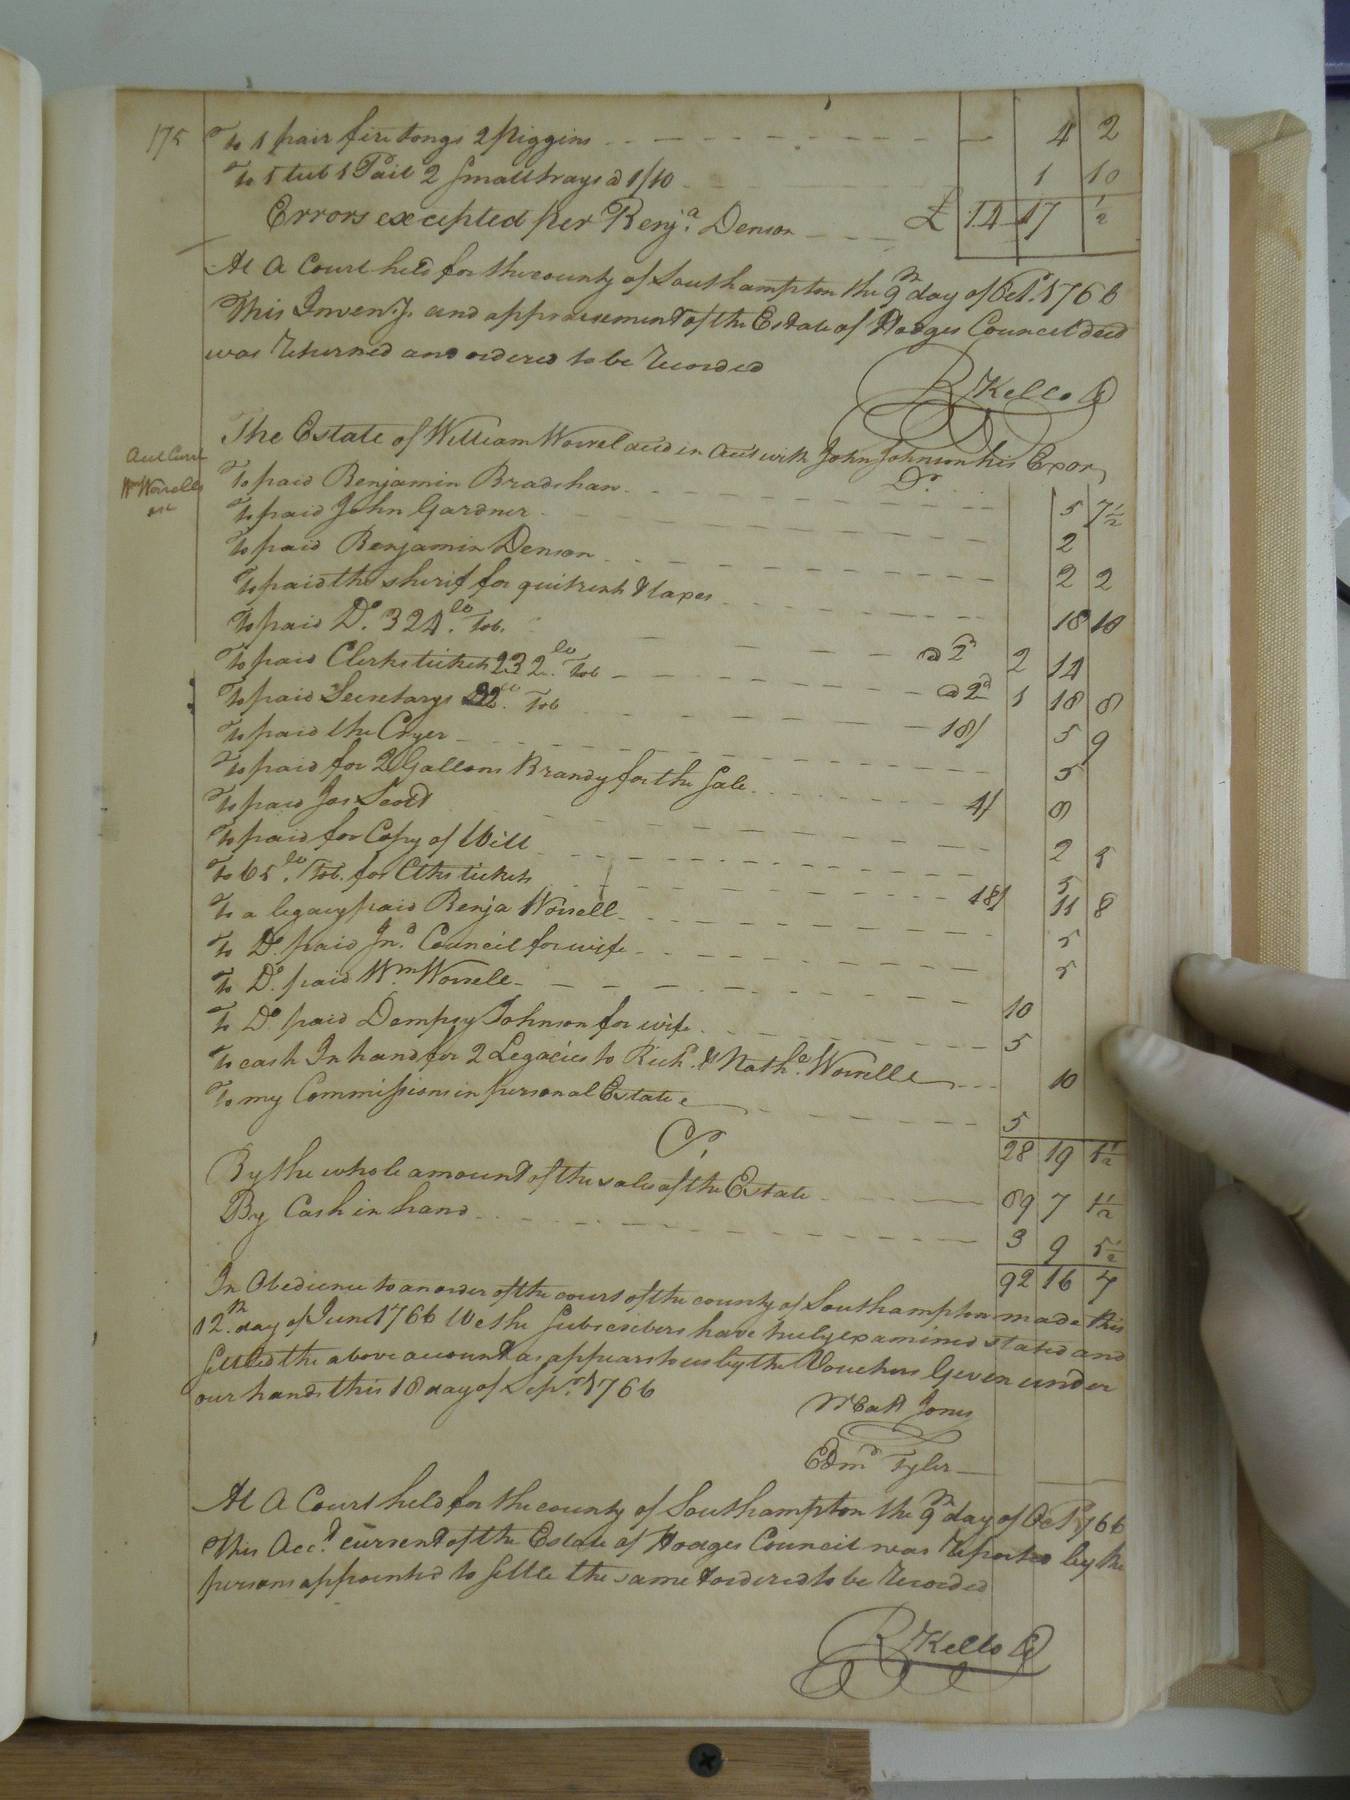 175
To 1 pair fire tongs 2 Piggins 4 2
To 1 tub 1 Pail 2 small trays @ 1/10 1 10
Errors excepted per Benja. Denson £ 14 17 ½
At A Court held for the county of Southampton the 9th day of Oct. 1766
This Inven.y and appraisement of the Estate of Hodges Council decd
was Returned and ordered to be Recorded
R Kello C
The Estate of William Worrel decd in Acct with John Johnson his Exor
Dr.
Acct Curr
Wm Worrells
To paid Benjamin Bradshaw 5 7½
To paid John Gardner 2
To paid Benjamin Denson 2 2
To paid the sherif for quitrents & taxes 18 10
To paid Do. 324 lb. Tob. @ 2d 2 14
To paid Clerks tickets 232 lb. Tob @ 2d 1 18 8
To paid Secretarys Do. Tob 18/ 5 9
To paid the Cryer 5
To paid for 2 Gallons Brandy for the Sale 4/ 8
To paid Jas Scott 2 5
To paid for Copy of Will 5
To 65 lb. Tob. for Clks tickets 18/ 11 8
To a legacy paid Benja Worrell 5
To Do. paid Jno. Council for wife 5
To Do. paid Wm. Worrell 10
To Do. paid Dempsy Johnson for wife 5
To cash In hand for 2 Legacies to Richd. & Nathl. Worrell 10
To my Commissions in personal Estate 5
28 19 1½
Cr.
By the whole amount of the sales of the Estate 89 7 1½
By Cash in hand 3 9 5½
92 16 7
In Obedience to an order of the court of the county of Southampton made this
12th. day of June 1766 We the Subscribers have truly examined stated and
Settled the above account as appears to us by the Vouchers Given under
our hands this 18 day of Sepr. 1766
Jones
Edmd Tyler
At A Court held for the county of Southampton the 9th day of Oct 1766
This Acct. current of the Estate of Hodges Council was Reported by the
persons appointed to settle the same & ordered to be Recorded
R Kello C